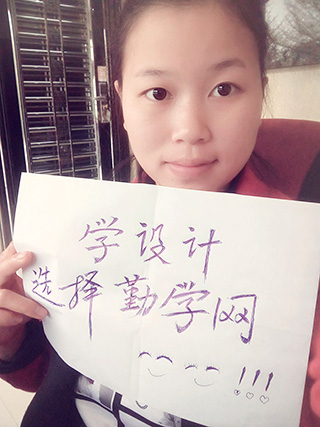 学设计
选择勤学网
!!!